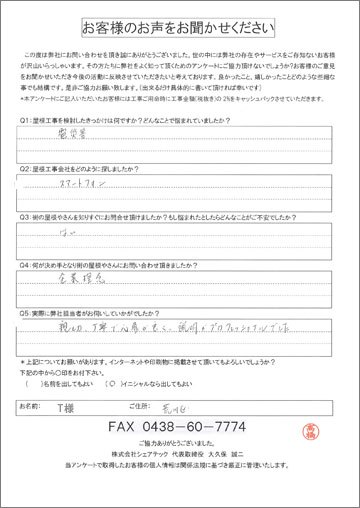 お客様のお声をお聞かせください
この度は弊社にお問い合わせを頂き誠にありがとうございました。世の中には弊社の存在やサービスをご存知ないお客様
が沢山いらっしゃいます。その方たちに弊社をよく知って頂くためのアンケートにご協力頂けないでしょうか?お客様のご意見
をお聞かせいただき今後の活動に反映させていただきたいと考えております。良かったこと、嬉しかったことなどのような些細な
事でも結構です。是非ご協力お願い致します。(出来るだけ具体的に書いて頂ければ幸いです)
*本アンケートにご記入いただいたお客様には工事ご用命時に工事金額(税抜き)の2%をキャッシュバックさせていただきます。
Q1:屋根工事を検討したきっかけは何ですか?どんなことで悩まれていましたか?
雹災害
Q2:屋根工事会社をどのように探しましたか?
スマートフォン
Q3:街の屋根やさんを知りすぐにお問合せ頂けましたか?もし悩まれたとしたらどんなことがご不安でしたか?
はい
Q4:何が決め手となり街の屋根やさんにお問い合わせ頂きましたか?
企業理念
Q5:実際に弊社担当者がお伺いしていかがでしたか?
親切、丁寧で
説明がプロフェッショナルでした
*上記についてお願いがあります。インターネットや印刷物に掲載させて頂いてもよろしいでしょうか?
下記の中から〇印をお付下さい。
( )名前を出してもよい (〇)イニシャルなら出してもよい
お名前: T様 ご住所: 荒川区
FAX 0438-60-7774
高橋
ご協力ありがとうございました。
株式会社シェアテック 代表取締役 大久保 誠二
当アンケートで取得したお客様の個人情報は関係法規に基づき厳正に管理いたします。